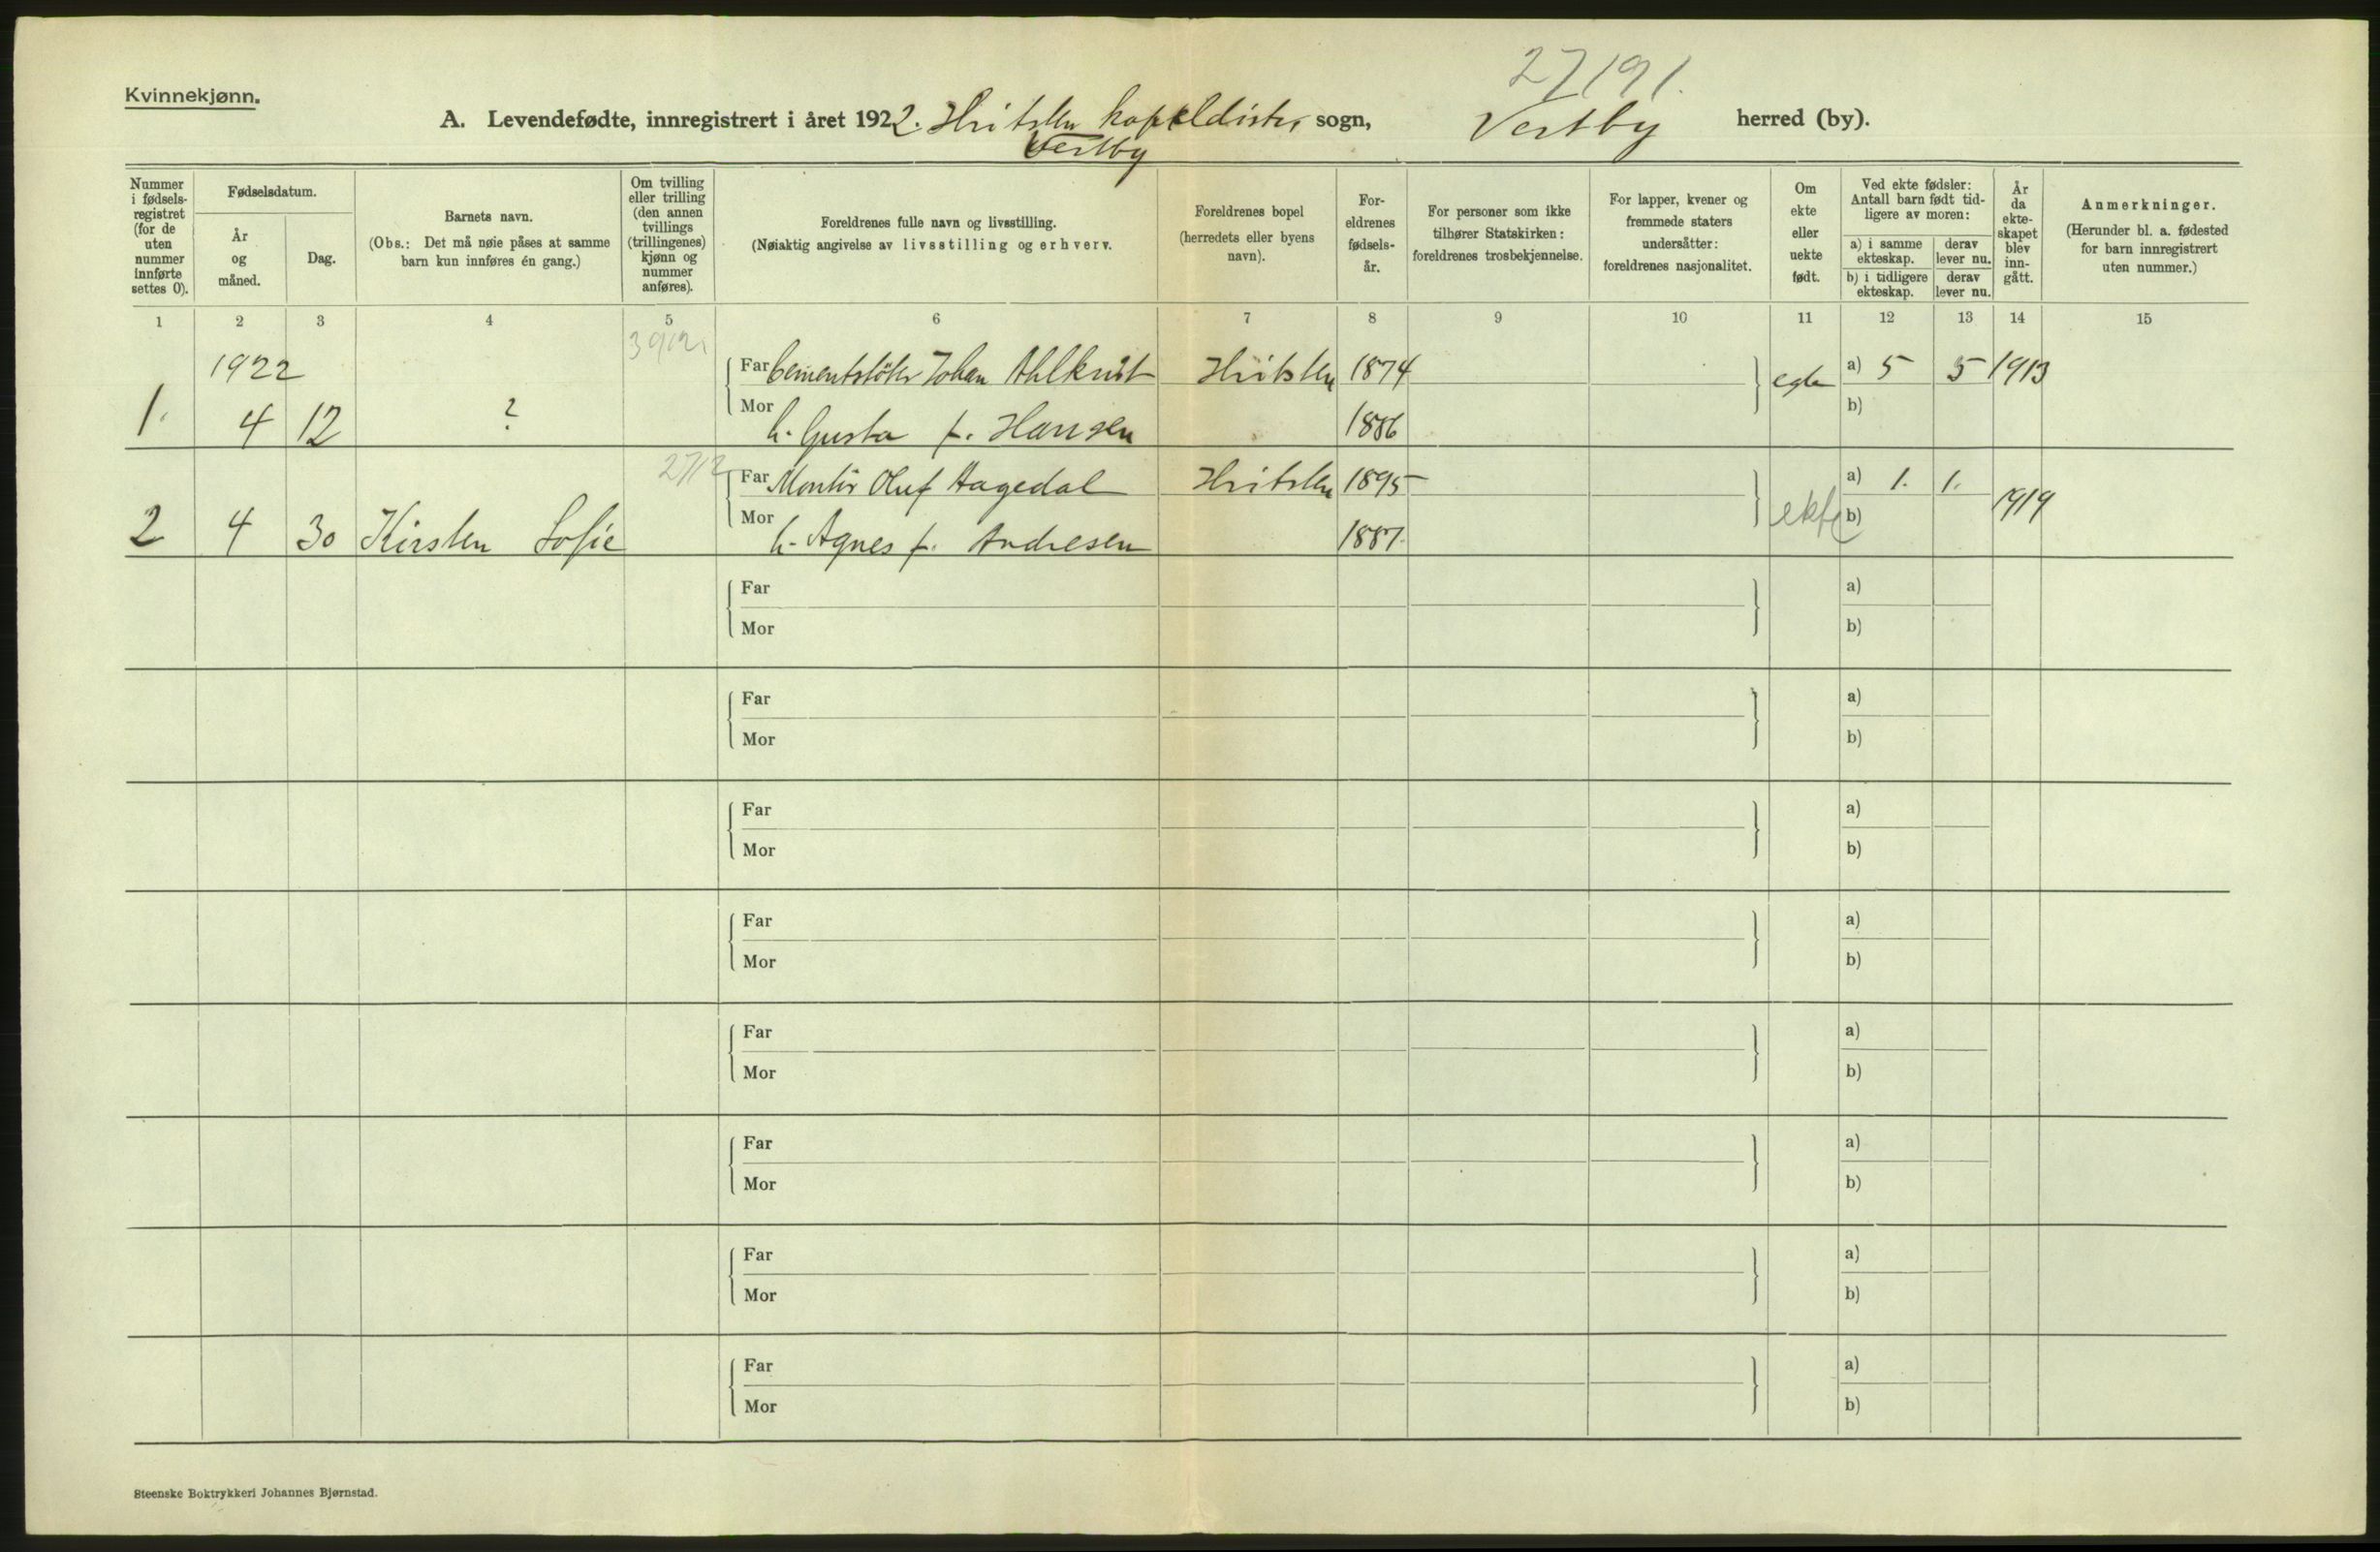 Kvinnekjønn.
27191.
A. Levendefødte, innregistrert i året 1922. Hvitsten kapeldistr. sogn, Vestby herred (by).
Vestby
Nummer i fødsels-registret (for de uten nummer innførte settes 0).
Fødselsdatum.
År og måned.
Dag.
Barnets navn.
(Obs.: Det må nøie påses at samme barn kun innføres én gang.)
Om tvilling eller trilling (den annen tvillings (trillingenes) kjønn og nummer anføres).
Foreldrenes fulle navn og livsstilling.
(Nøiaktig angivelse av livsstilling og erhverv.
Foreldrenes bopel (herredets eller byens navn).
For-eldrenes fødsels-år.
For personer som ikke tilhører Statskirken: foreldrenes trosbekjennelse.
For lapper, kvener og fremmede staters undersåtter: foreldrenes nasjonalitet.
Om ekte eller uekte født.
Ved ekte fødsler: Antall barn født tid-ligere av moren:
a) i samme ekteskap.
derav lever nu.
b) i tidligere ekteskap.
derav lever nu.
År da ekte-skapet blev inn-gått.
Anmerkninger.
(Herunder bl. a. fødested for barn innregistrert uten nummer.)
1 2 3 4 5 6 7 8 9 10 11 12 13 14 15
1922
Far Cementstöter Johan Ahlkvist Hvitsten 1874 egte a) 5 5 1913
1. 4 12 ? Mor h. Gusta f. Hansen 1886 b)
Far Montör Oluf Hagedal Hvitsten 1895 a) 1. 1. 1919
2 4 30 Kirsten Sofie Mor h. Agnes f. Andresen 1887. b)
Far a)
Mor b)
Far a)
Mor b)
Far a)
Mor b)
Far a)
Mor b)
Far a)
Mor b)
Far a)
Mor b)
Far a)
Mor b)
Far a)
Mor b)
Steenske Boktrykkeri Johannes Bjørnstad.